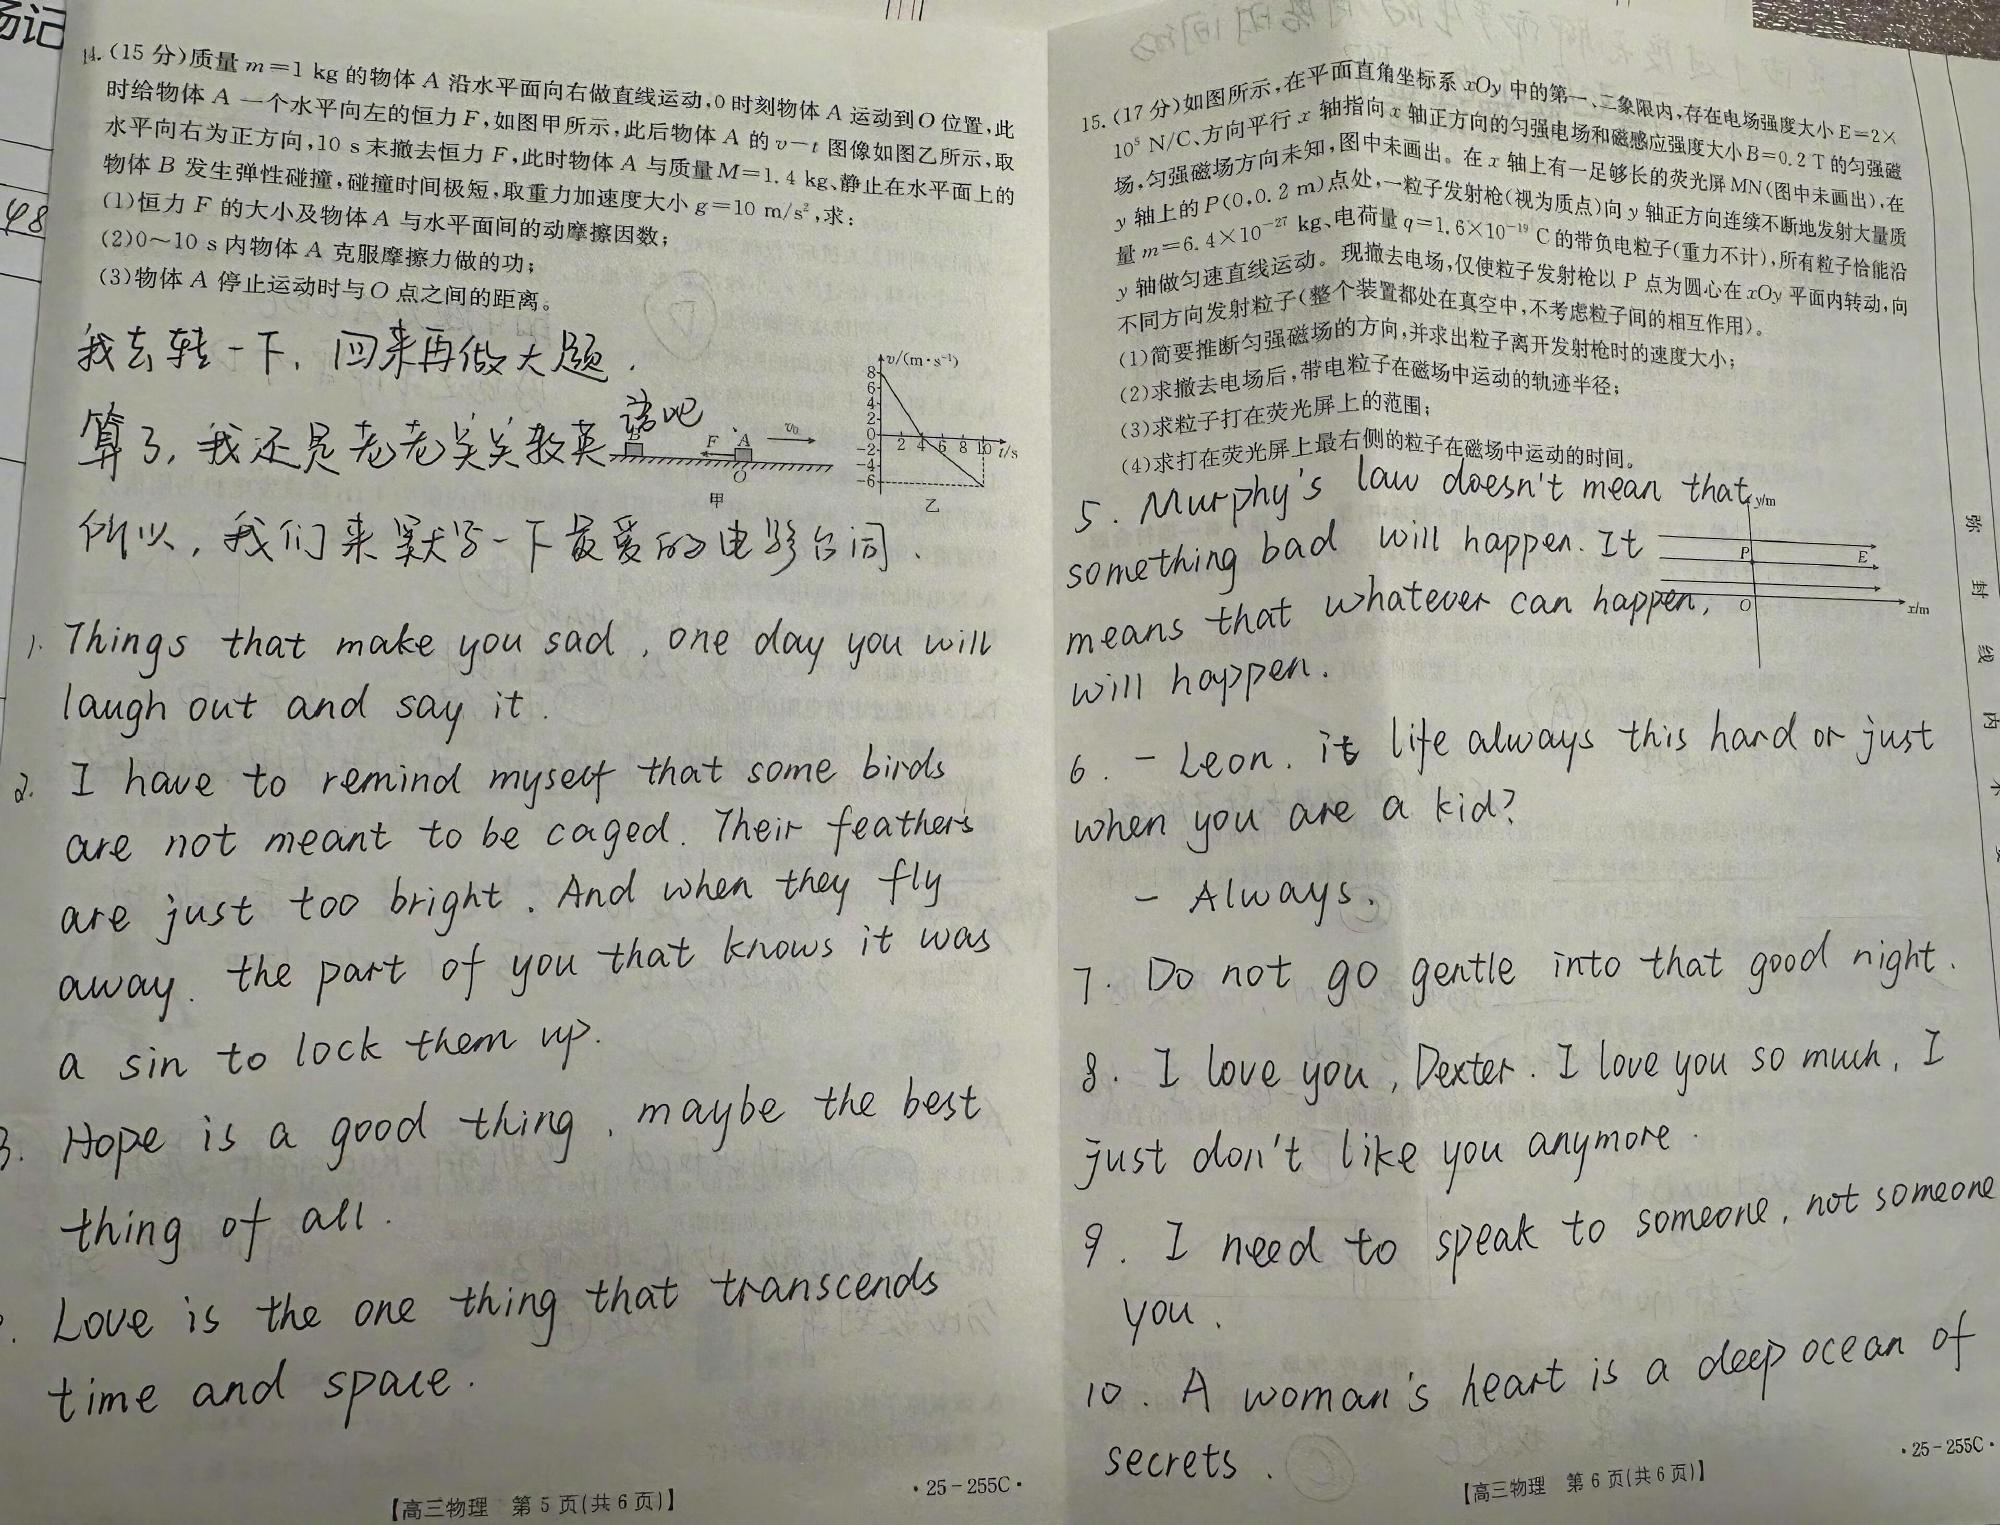 场记
48
14.(15 分)质量 m=1 kg 的物体 A 沿水平面向右做直线运动,0 时刻物体 A 运动到O 位置,此
时给物体 A 一个水平向左的恒力 F,如图甲所示,此后物体 A 的 v-t 图像如图乙所示,取
水平向右为正方向,10 s 末撤去恒力 F,此时物体 A 与质量 M=1.4 kg、静止在水平面上的
物体 B 发生弹性碰撞,碰撞时间极短,取重力加速度大小 g=10 m/s²,求:
(1)恒力 F 的大小及物体 A 与水平面间的动摩擦因数;
(2)0~10 s 内物体 A 克服摩擦力做的功;
(3)物体 A 停止运动时与 O 点之间的距离。
我去转一下, 回来再做大题.
算了, 我还是老老实实教英语吧
B F A v₀
O
甲
v/(m·s⁻¹)
8
6
4
2
0 2 4 6 8 10 t/s
-2
-4
-6
乙
所以, 我们来默写一下最爱的电影台词.
1. Things that make you sad, one day you will
laugh out and say it.
2. I have to remind myself that some birds
are not meant to be caged. Their feathers
are just too bright. And when they fly
away. the part of you that knows it was
a sin to lock them up.
3. Hope is a good thing, maybe the best
thing of all.
Love is the one thing that transcends
time and space.
【高三物理 第 5 页(共 6 页)】
·25-255C·
15.(17 分)如图所示,在平面直角坐标系 xOy 中的第一、二象限内,存在电场强度大小 E=2×
10⁵ N/C、方向平行 x 轴指向 x 轴正方向的匀强电场和磁感应强度大小 B=0.2 T 的匀强磁
场,匀强磁场方向未知,图中未画出。在 x 轴上有一足够长的荧光屏 MN(图中未画出),在
y 轴上的 P(0,0.2 m)点处,一粒子发射枪(视为质点)向 y 轴正方向连续不断地发射大量质
量 m=6.4×10⁻²⁷ kg、电荷量 q=1.6×10⁻¹⁹ C 的带负电粒子(重力不计),所有粒子恰能沿
y 轴做匀速直线运动。现撤去电场,仅使粒子发射枪以 P 点为圆心在 xOy 平面内转动,向
不同方向发射粒子(整个装置都处在真空中,不考虑粒子间的相互作用)。
(1)简要推断匀强磁场的方向,并求出粒子离开发射枪时的速度大小;
(2)求撤去电场后,带电粒子在磁场中运动的轨迹半径;
(3)求粒子打在荧光屏上的范围;
(4)求打在荧光屏上最右侧的粒子在磁场中运动的时间。
y/m
P E
O x/m
5. Murphy's law doesn't mean that
something bad will happen. It
means that whatever can happen,
will happen.
6. - Leon. is life always this hard or just
when you are a kid?
- Always.
7. Do not go gentle into that good night.
8. I love you, Dexter. I love you so much, I
just don't like you anymore.
9. I need to speak to someone, not someone
you.
10. A woman's heart is a deep ocean of
secrets.
·25-255C·
【高三物理 第 6 页(共 6 页)】
弥
封
线
内
不